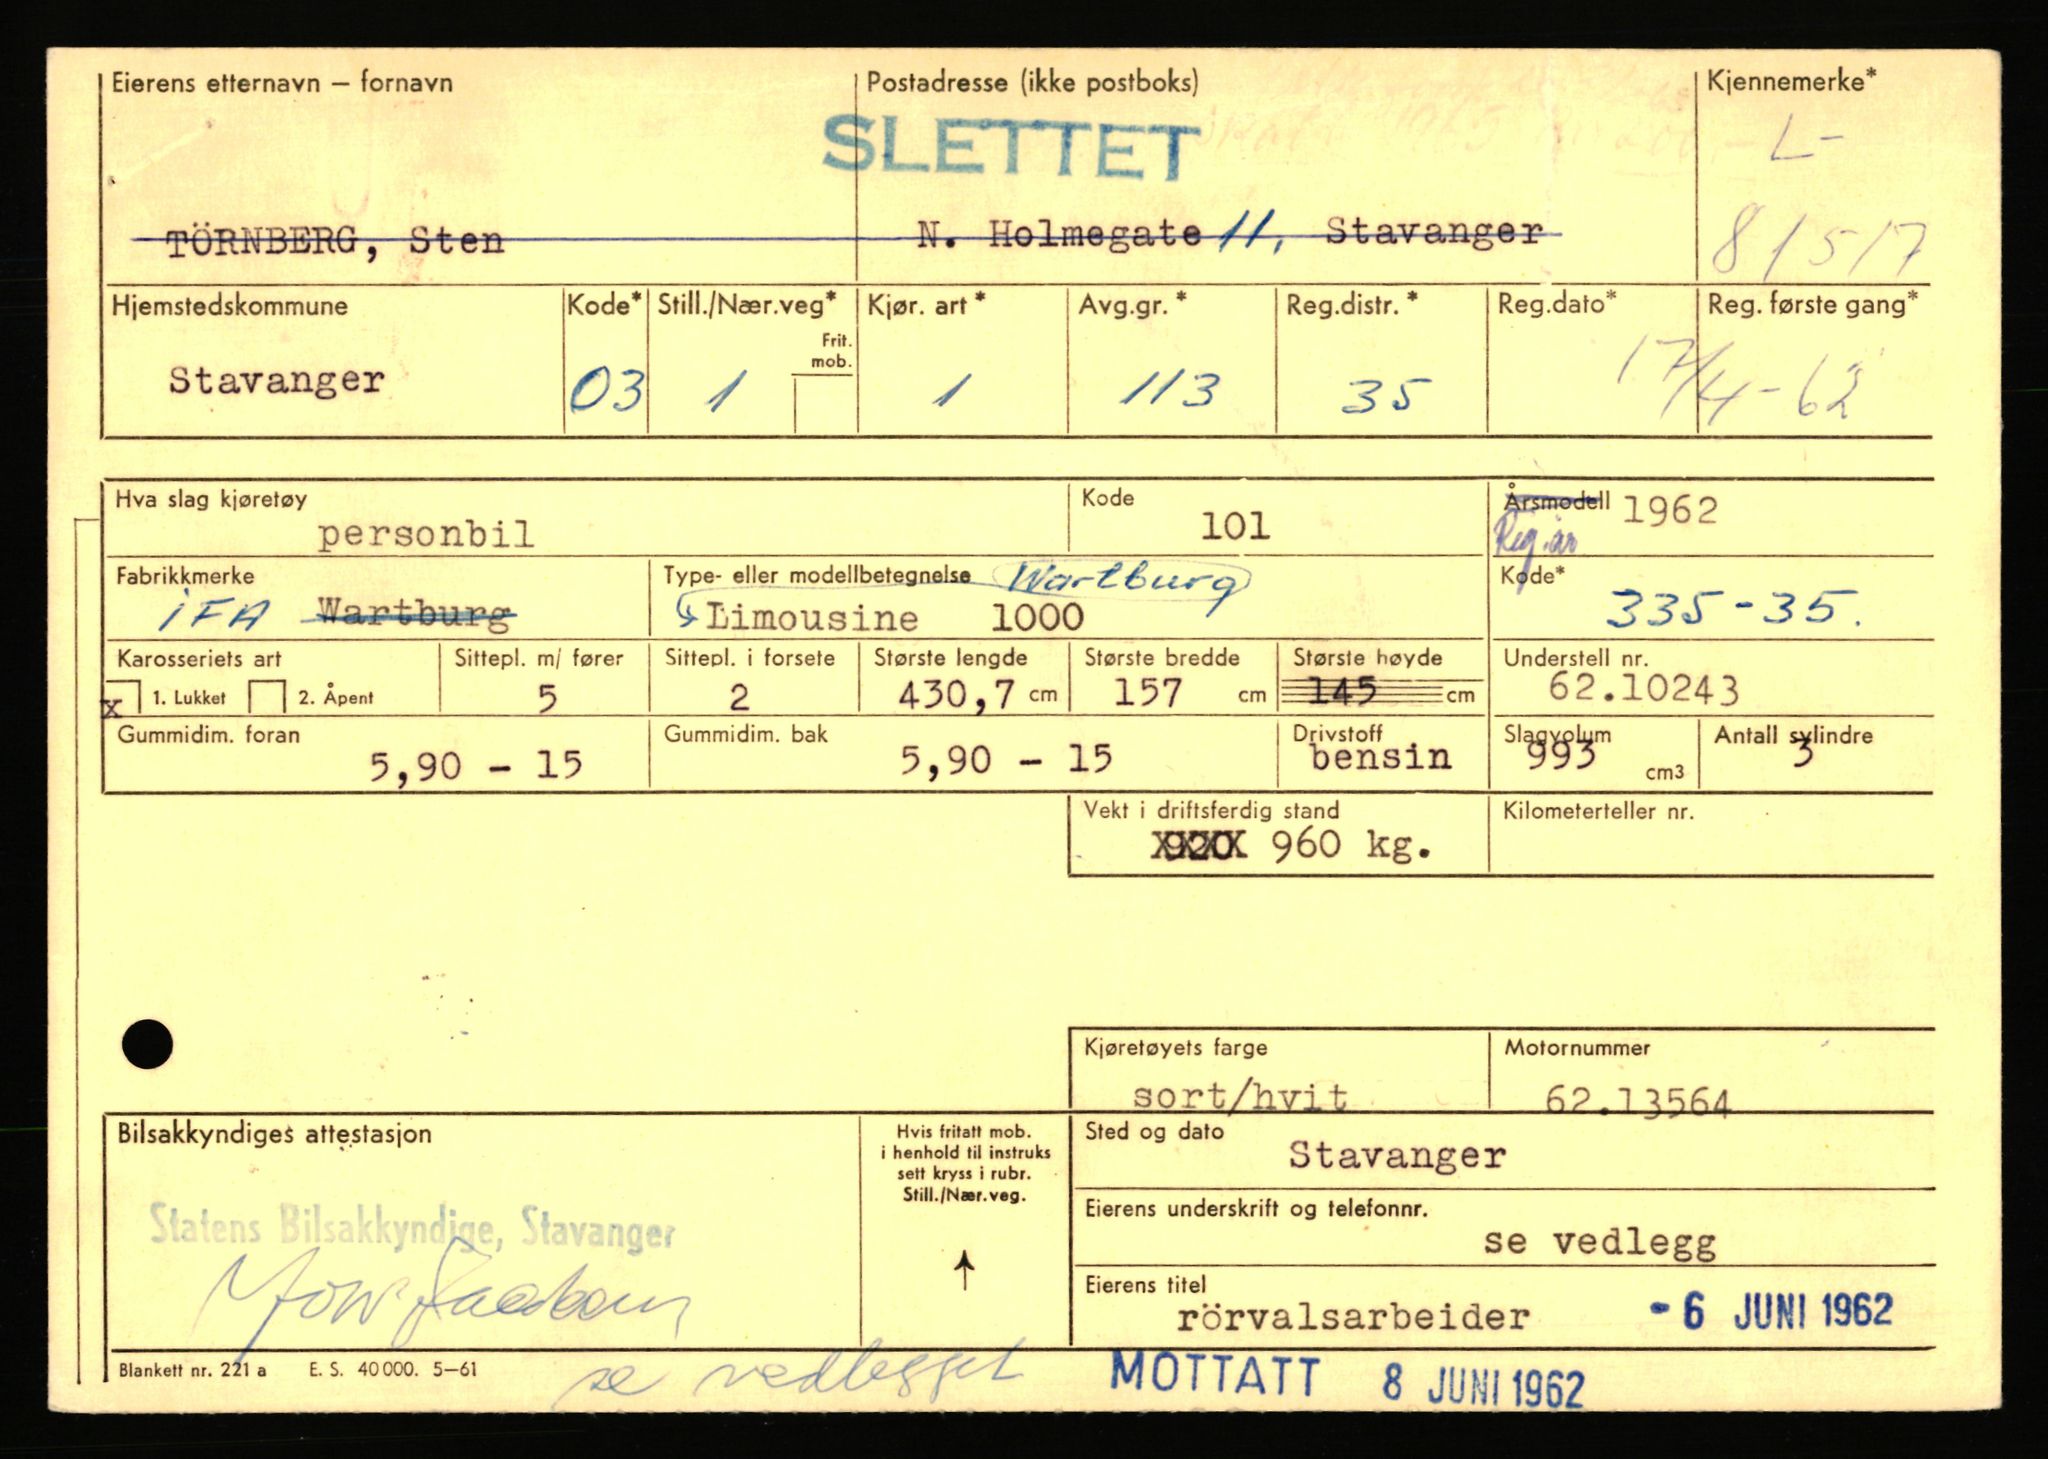 Eierens etternavn – fornavn
Postadresse (ikke postboks)
Kjennemerke*
SLETTET
L-
TÖRNBERG, Sten
N. Holmegate 11, Stavanger
81517
Hjemstedskommune
Kode*
Still./Nær.veg*
Kjør. art *
Avg.gr. *
Reg.distr. *
Reg.dato*
Reg. første gang*
Frit.
mob.
Stavanger
03
1
1
113
35
17/4-62
Hva slag kjøretøy
personbil
Kode
101
Årsmodell 1962
Reg.år
Fabrikkmerke
iFA Wartburg
Type- eller modellbetegnelse Wartburg
Limousine 1000
Kode*
335-35.
Karosseriets art
Sittepl. m/ fører
Sittepl. i forsete
Største lengde
Største bredde
Største høyde
Understell nr.
x 1. Lukket 2. Åpent
5
2
430,7 cm
157 cm
145 cm
62.10243
Gummidim. foran
5,90 - 15
Gummidim. bak
5,90 - 15
Drivstoff
bensin
Slagvolum
993 cm3
Antall sylindre
3
Vekt i driftsferdig stand
920 960 kg.
Kilometerteller nr.
Kjøretøyets farge
sort/hvit
Motornummer
62.13564
Bilsakkyndiges attestasjon
Statens Bilsakkyndige, Stavanger
Hvis fritatt mob.
i henhold til instruks
sett kryss i rubr.
Still./Nær.veg.
Sted og dato
Stavanger
Eierens underskrift og telefonnr.
se vedlegg
Eierens titel
rörvalsarbeider
- 6 JUNI 1962
Blankett nr. 221 a E. S. 40 000. 5–61
se vedlegget
MOTTATT 8 JUNI 1962